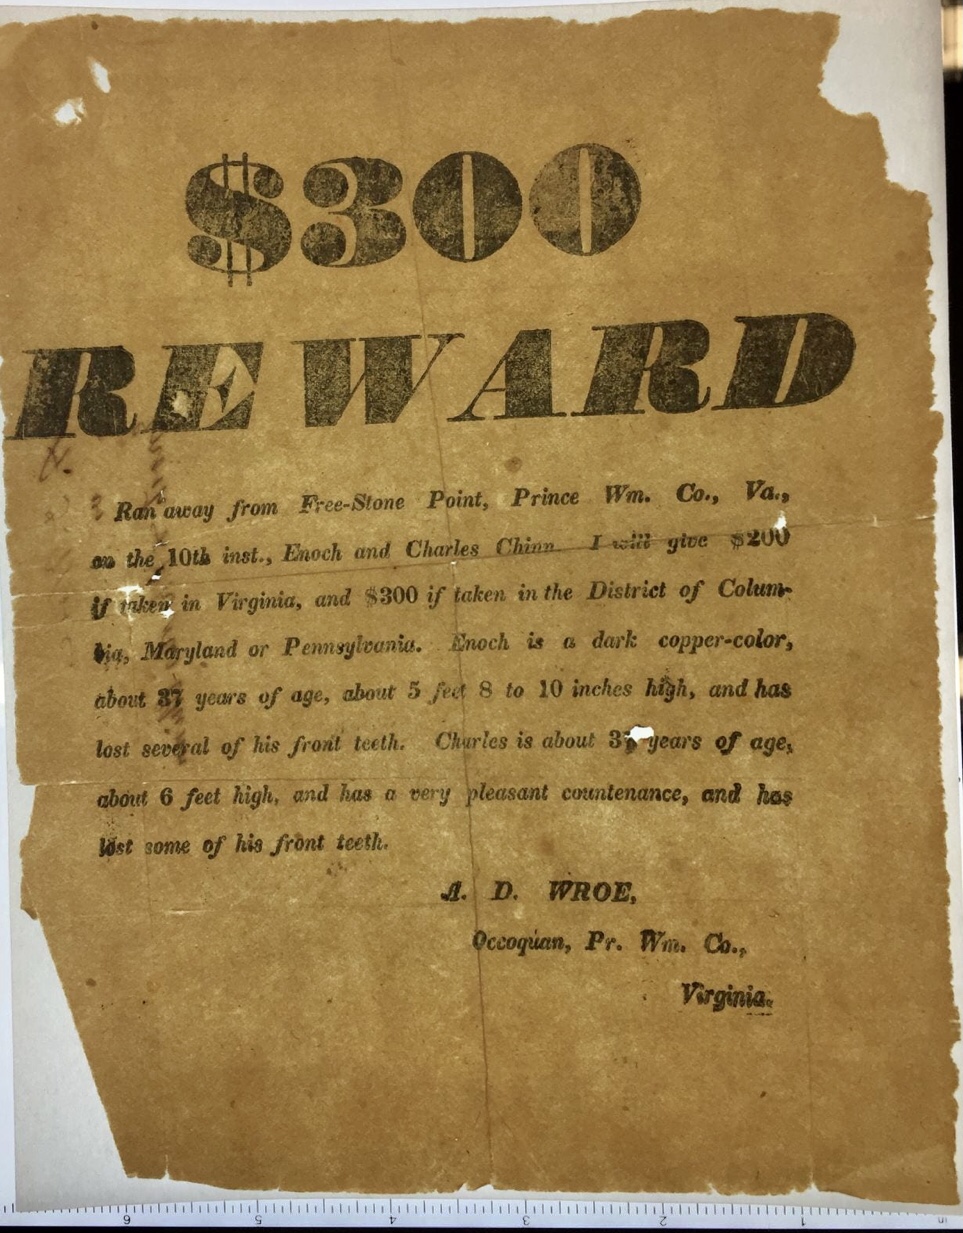 $300
REWARD
Ran away from Free-Stone Point, Prince Wm. Co., Va.,
on the 10th inst., Enoch and Charles Chinn. I will give $200
if taken in Virginia, and $300 if taken in the District of Colum-
bia, Maryland or Pennsylvania. Enoch is a dark copper-color,
about 37 years of age, about 5 feet 8 to 10 inches high, and has
lost several of his front teeth. Charles is about years of age,
about 6 feet high, and has a very pleasant countenance, and has
lost some of his front teeth.
A. D. WROE,
Occoquan, Pr. Wm. Co.,
Virginia.
6 5 4 3 2 1 in